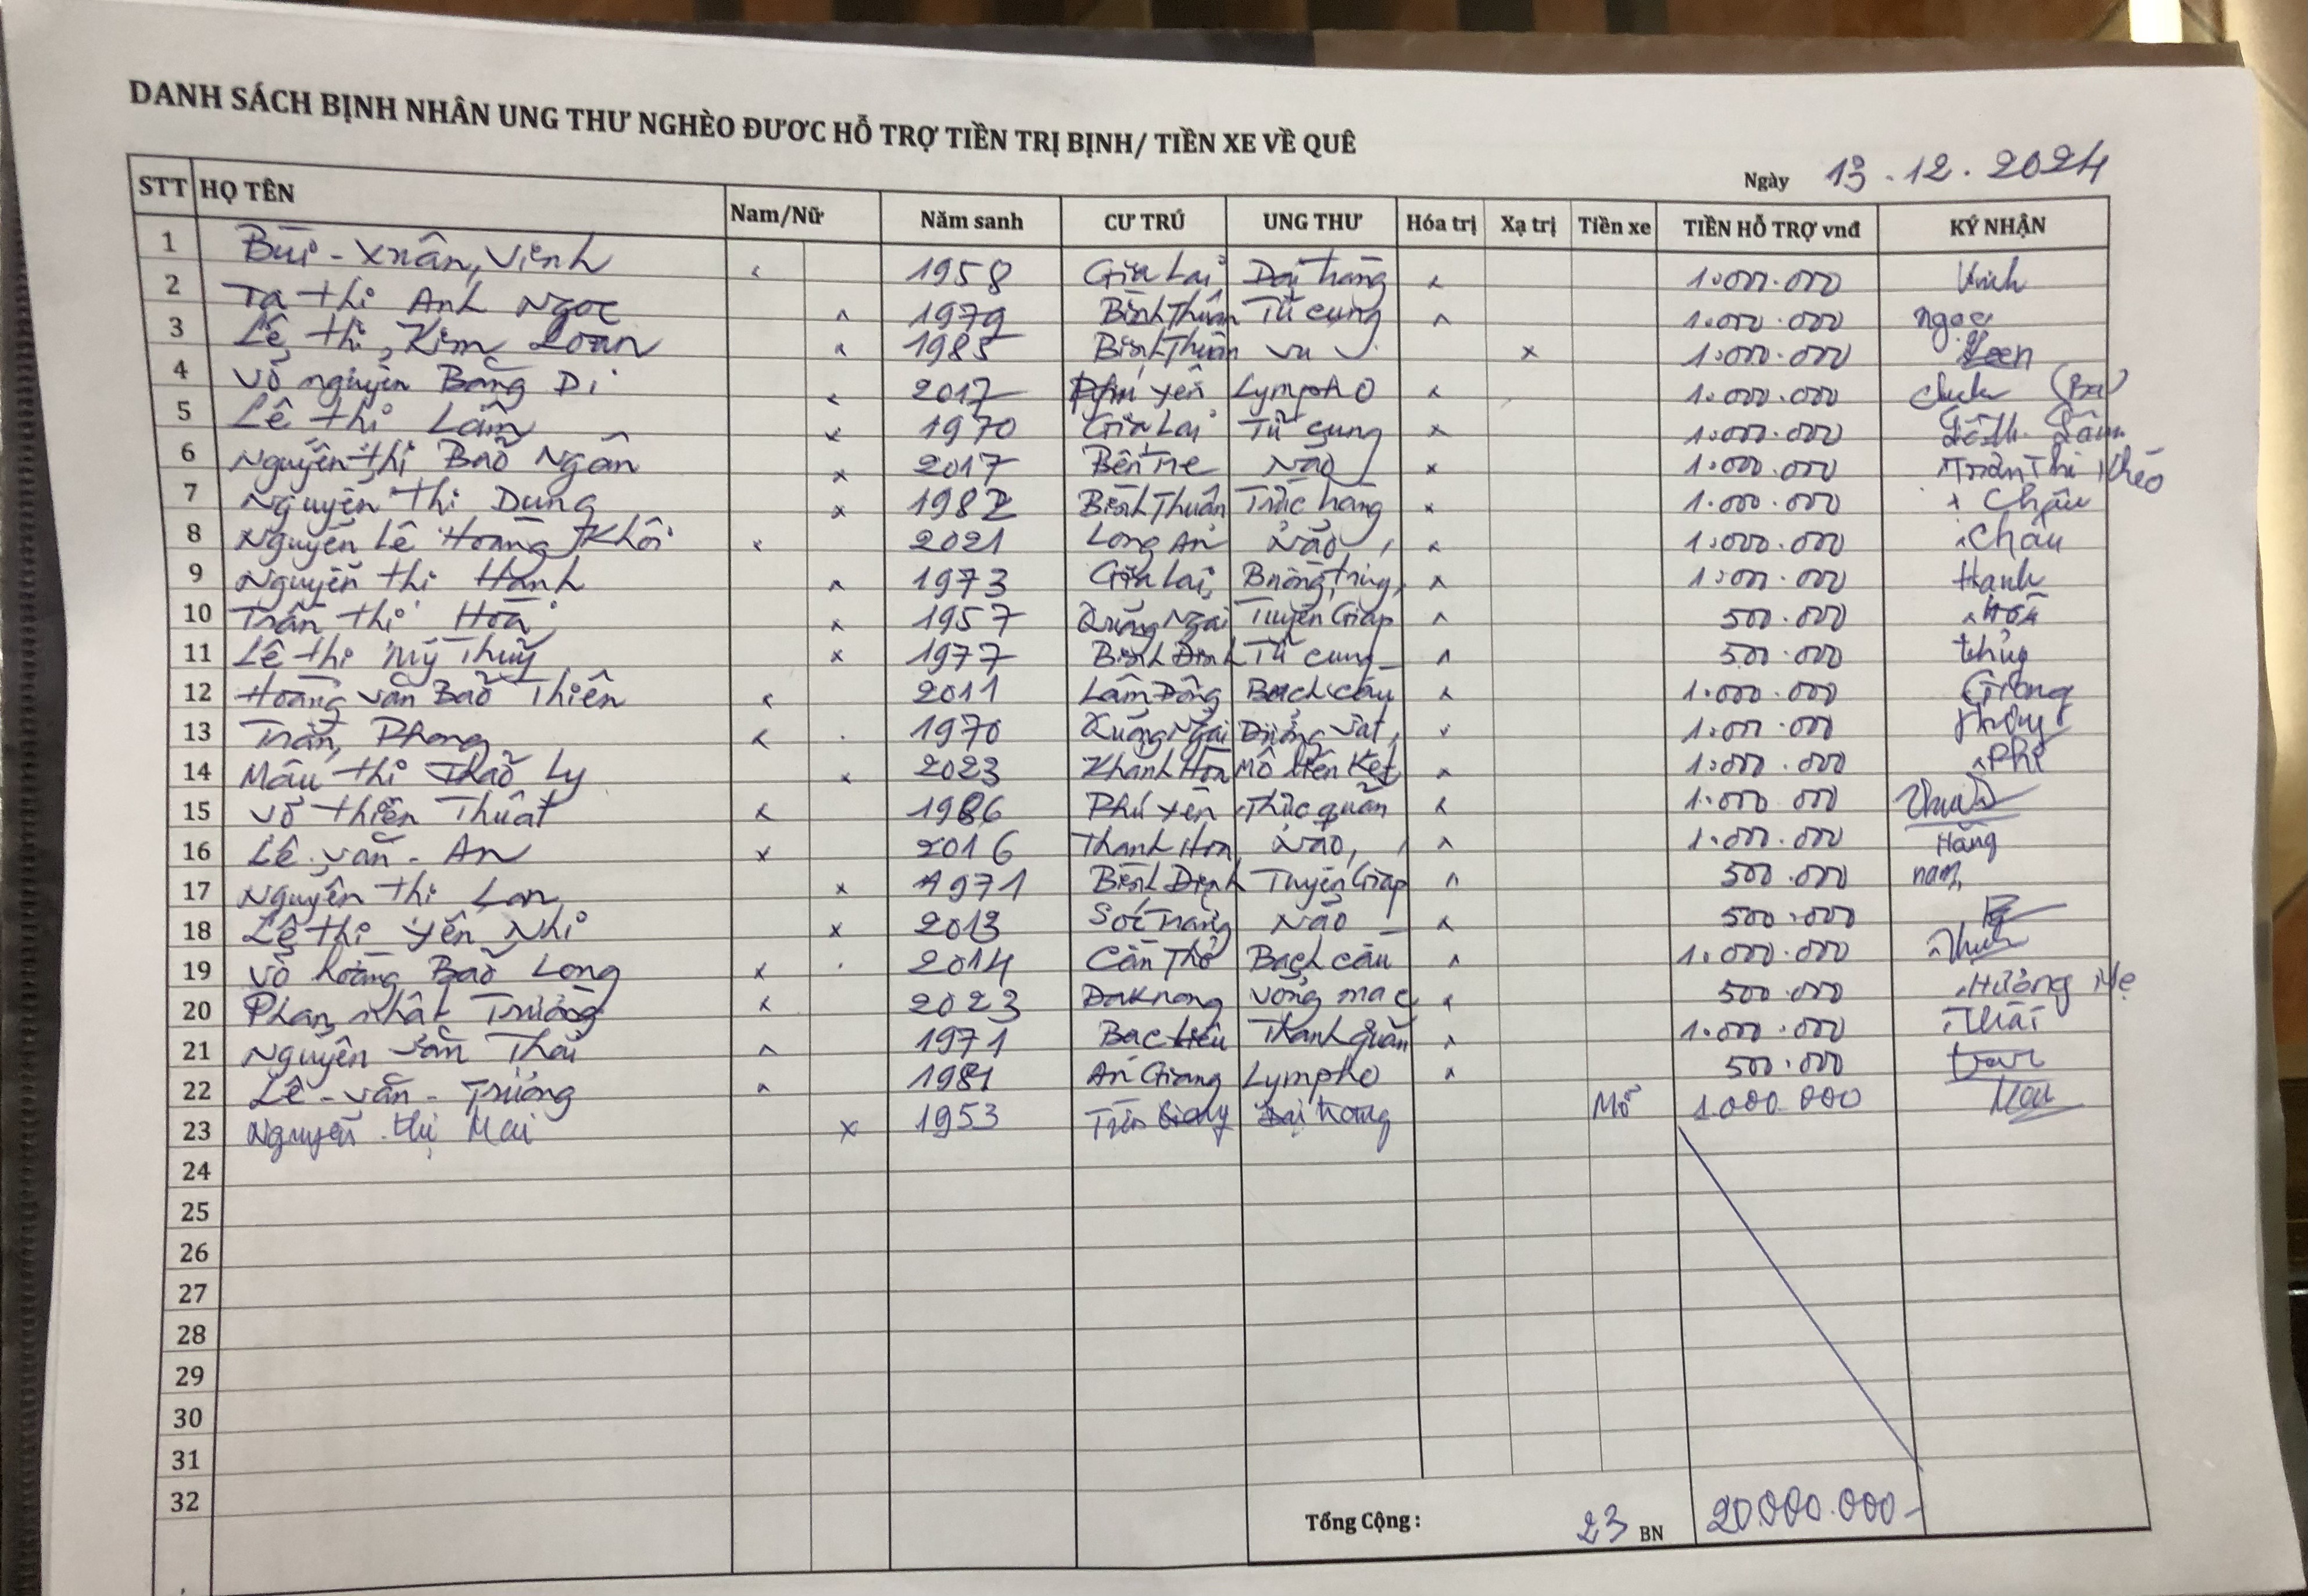 DANH SÁCH BỊNH NHÂN UNG THƯ NGHÈO ĐƯƠC HỖ TRỢ TIỀN TRỊ BỊNH/ TIỀN XE VỀ QUÊ
Ngày 13.12.2024
STT HỌ TÊN Nam/Nữ Năm sanh CƯ TRÚ UNG THƯ Hóa trị Xạ trị Tiền xe TIỀN HỖ TRỢ vnđ KÝ NHẬN
1 Bùi - Xuân, Vinh x 1958 Gia Lai Đại tràng x 1.000.000 Vinh
2 Tạ thị Anh Ngọc x 1979 Bình Thuận Tử cung x 1.000.000 Ngọc
3 Lê thị Kim Loan x 1985 Bình Thuận Vú x 1.000.000 Loan
4 Võ nguyễn Băng Di x 2017 Phú Yên Lympho x 1.000.000 (Ba)
5 Lê thị Lắm x 1970 Gia Lai Tử cung x 1.000.000
6 Nguyễn thị Bảo Ngân x 2017 Bến Tre Não x 1.000.000 Trần Thị
7 Nguyễn thị Dung x 1982 Bình Thuận Trực tràng x 1.000.000 x Châu
8 Nguyễn Lê Hoàng Khôi x 2021 Long An Não x 1.000.000 Châu
9 Nguyễn thị Hạnh x 1973 Gia Lai Buồng trứng x 1.000.000 Hạnh
10 Trần thị Hoa x 1957 Quảng Ngãi Tuyến Giáp x 500.000 Hoa
11 Lê thị Mỹ Thủy x 1977 Bình Định Tử cung x 500.000 thủy
12 Hoàng văn Bảo Thiên x 2011 Lâm Đồng Bạch cầu x 1.000.000
13 Trần, Phong x 1970 Quảng Ngãi Đường vật x 1.000.000
14 Mấu thị Thảo Ly x 2023 Khánh Hòa Mô liên Kết x 1.000.000 Phi
15 Võ thiên Thuật x 1986 Phú Yên Thực quản x 1.000.000 Thuật
16 Lê văn - An x 2016 Thanh Hóa Não x 1.000.000 Hằng
17 Nguyễn thị Lan x 1971 Bình Định Tuyến Giáp x 500.000 nam
18 Lê thị Yến Nhi x 2013 Sóc Trăng Não x 500.000
19 Võ hoàng Bảo Long x 2014 Cần Thơ Bạch cầu x 1.000.000
20 Phan nhật Trường x 2023 Daknong Võng mạc x 500.000 Hương Mẹ
21 Nguyễn văn Thái x 1971 Bạc Liêu Thanh quản x 1.000.000 Thái
22 Lê - văn - Trường x 1981 An Giang Lympho x 500.000
23 Nguyễn thị Mai x 1953 Tiền Giang Đại tràng Mổ 1.000.000 Mai
24
25
26
27
28
29
30
31
32
Tổng Cộng : 23 BN 20.000.000-